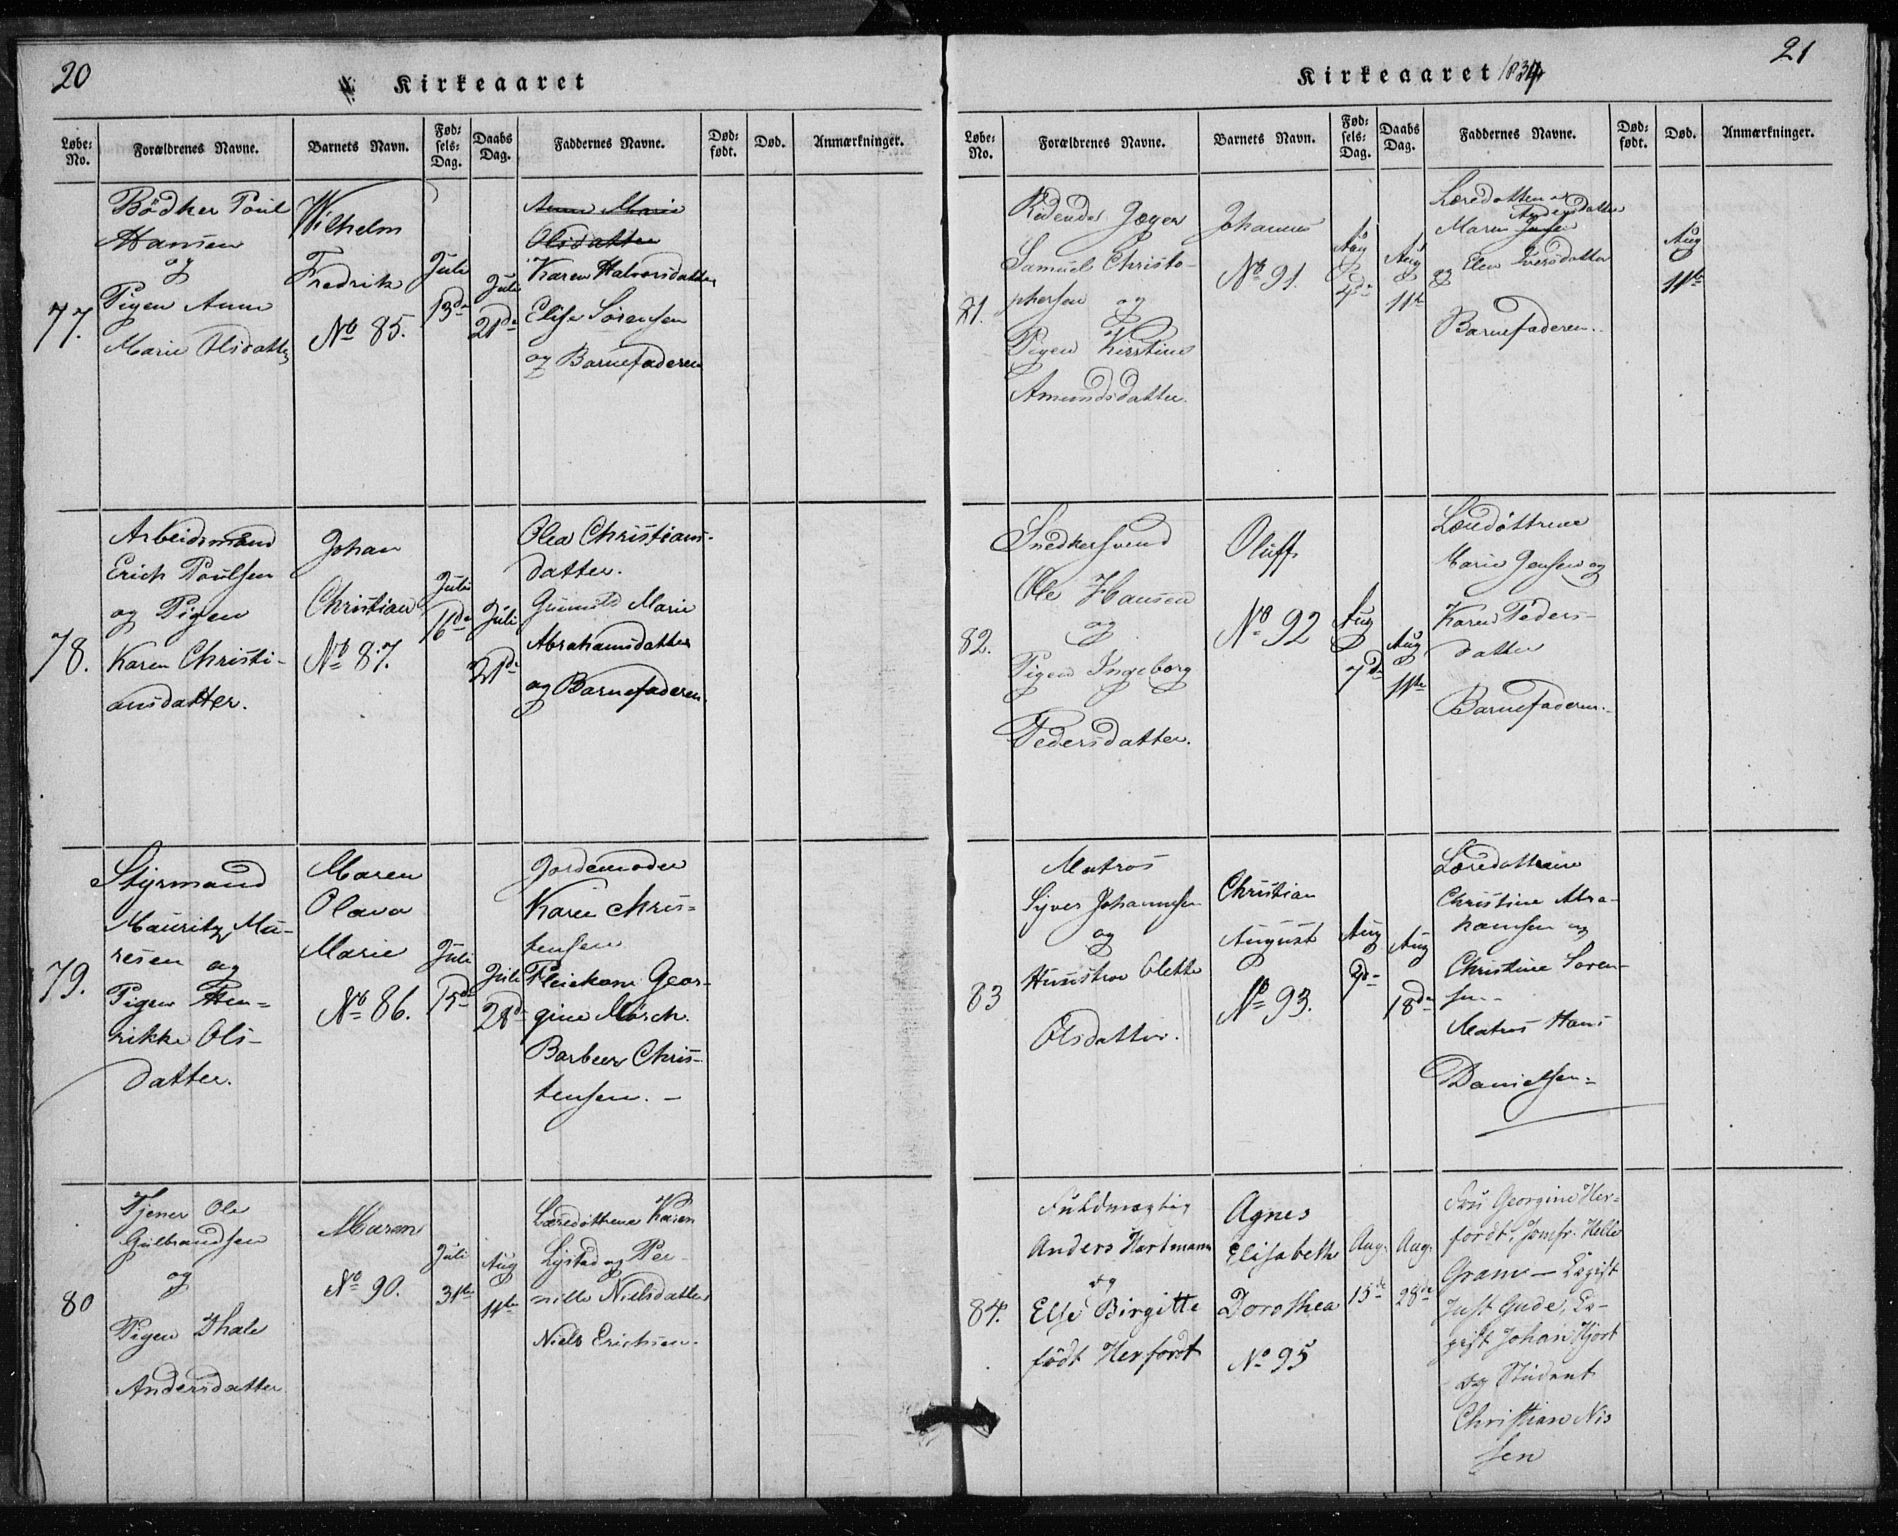 20
Kirkeaaret
Løbe-No. Forældrenes Navne. Barnets Navn. Fød-sels-Dag. Daabs Dag. Faddernes Navne. Død-født. Død. Anmærkninger.
77.
Bödker Poul
Hansen
og
Pigen Anne
Marie Olsdatter
Wilhelm
Fredrik
No 85.
Juli
13de
Juli
21de
Anne Marie
Olsdatter
Karen Halvorsdatter
Elise Sörensen
og Barnefaderen
78.
Arbeidsmand
Erich Poulsen
og Pigen
Karen Christi-
ansdatter.
Johan
Christian
No 87.
Juli
16de
Juli
21de
Olea Christians-
datter.
Marie
Abrahamsdatter
og Barnefaderen.
79.
Styrmand
Mauritz Mu-
resen og
Pigen Hen-
rikke Ols-
datter.
Maren
Olava
Marie
No 86.
Juli
15de
Juli
28de
Jordemoder
Karen Chris-
tensen
Georgine Mørch.
Barbeer Chris-
tensen. -
80
Tjener Ole
Gulbrandsen
og
Pigen Thale
Andersdatter
Maren
No 90.
Juli
31te
Aug
11te
Læredöttrene Karen
Lystad og Per-
nille Nielsdatter
Niels Erichsen.
21
Kirkeaaret 1834
Løbe-No. Forældrenes Navne. Barnets Navn. Fød-sels-Dag. Daabs Dag. Faddernes Navne. Død-født. Død. Anmærkninger.
81.
Ridende Jæger
Samuel Christo-
phersen og
Pigen Kirstine
Amundsdatter.
Johannes
No 91.
Aug
4de
Aug
11te
Læredatteren
Maren Andersdatter
og Elen Iversdatter
Barnefaderen.
Aug
11te
82.
Snedkersvend
Ole Hansen
og
Pigen Ingeborg
Pedersdatter.
Oluff
No 92
Aug
7de
Aug
11te
Læredöttrene
Marie Jensen og
Karen Peders-
datter
Barnefaderen.
83
Matros
Syver Johannsen
og
Hustroe Olette
Olsdatter.
Christian
August
No 93.
Aug
9de
Aug
18de
Læredöttrene
Christine Abra-
hamsen og
Christine Soren-
sen.
Matros Hans
Danielsen.
84.
Fuldmægtig
Anders Hartmann
og
Else Birgitte
födt Herfordt
Agnes
Elisabeth
Dorothea
No 95
Aug.
15de
Aug.
28de
Fru Georgine Her-
fordt, Jomfr. Helle
Gram — Exgist
Just Gude, Ex-
gist Johan Hjort
og Student
Christian Nis
sen